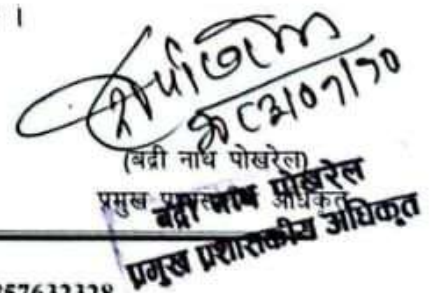 ।
२०८२/०१/१०
(बद्री नाथ पोखरेल)
प्रमुख प्रशासकीय अधिकृत
बद्री नाथ पोखरेल
प्रमुख प्रशासकीय अधिकृत
57632328